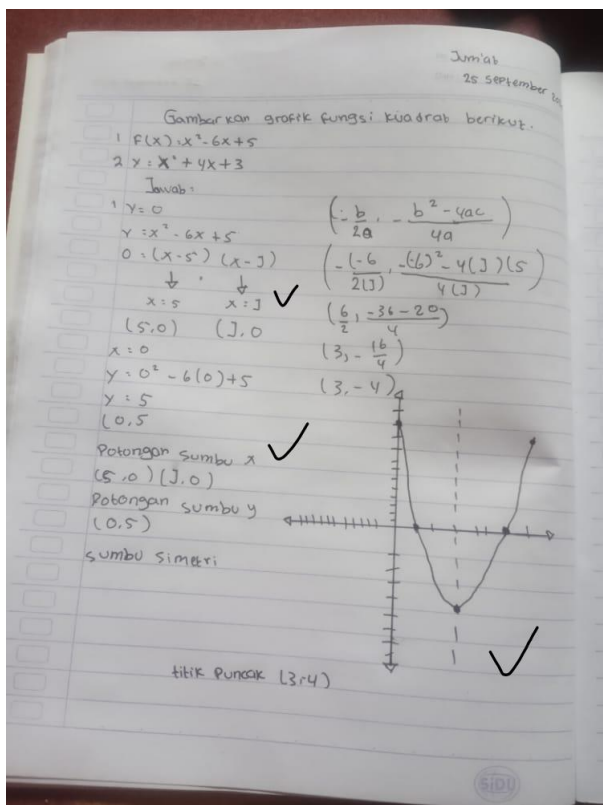 Jum'at
25 September 20
Gambarkan grafik fungsi kuadrat berikut.
1 F(x) = x² - 6x + 5
2 y = x² + 4x + 3
Jawab:
1 y = 0
y = x² - 6x + 5
0 = (x - 5) (x - 1)
↓ ↓
x = 5 x = 1 ✓
(5,0) (1,0
x = 0
y = 0² - 6(0) + 5
y = 5
(0,5
Potongan sumbu x ✓
(5,0) (1,0)
Potongan sumbu y
(0,5)
sumbu simetri
(-b/2a, - b² - 4ac/4a)
(-(-6/2(1), -(-6)² - 4(1)(5/4(1))
(6/2, -36 - 20/4)
(3, - 16/4)
(3, -4)
✓
titik Puncak (3,-4)
SIDU